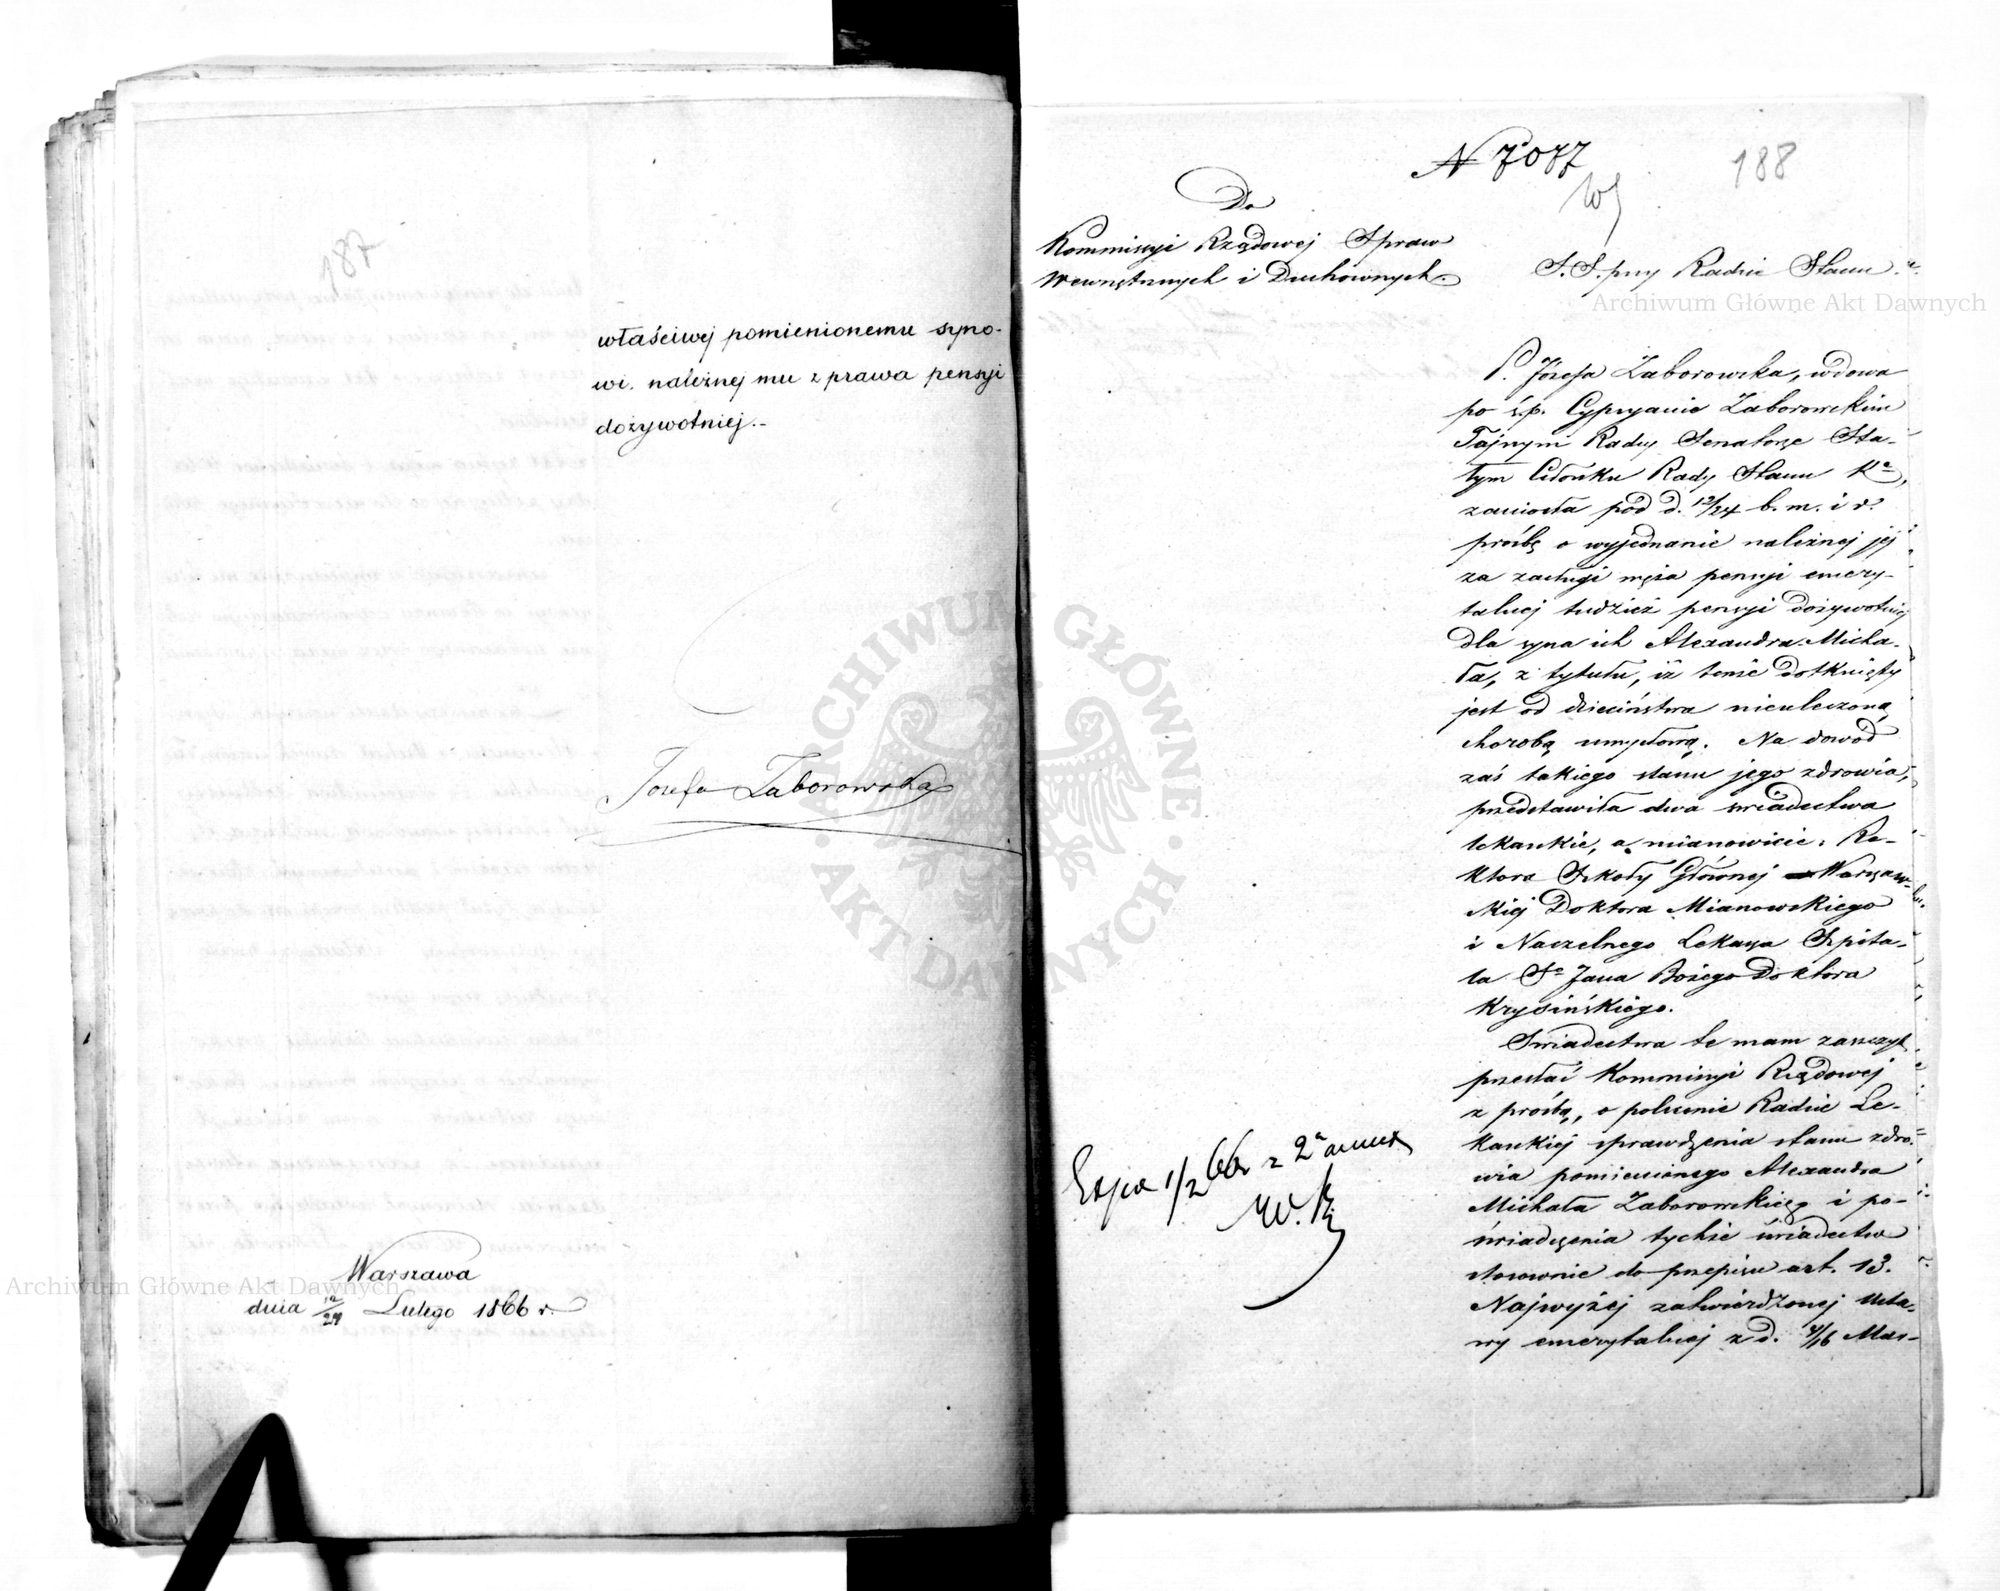 187
właściwej pomienionemu syno-
wi, należnej mu z prawa pensyi
dożywotniej.-
Józefa Zaborowska
Warszawa
dnia 12/24 Lutego 1866 r.
Archiwum Główne Akt Dawnych
ARCHIWUM GŁÓWNE AKT DAWNYCH
N 7077
188
Do
Kommissyi Rządowej Spraw
Wewnętrznych i Duchownych.
S. S. przy Radzie Stanu.
Archiwum Główne Akt Dawnych
P. Józefa Zaborowska, wdowa
po ś.p. Cypryanie Zaborowskim
Tajnym Radcy Senatorze Sta-
łym Członku Rady Stanu Kа,
zaniosła pod d. 12/24 b. m. i r.
prośbę o wyjednanie należnej jej
za zasługi męża pensyi emery-
talnej tudzież pensyi dożywotniej
dla syna ich Alexandra Micha-
ła, z tytułu, iż tenże dotknięty
jest od dzieciństwa nieuleczoną
chorobą umysłową. Na dowód
zaś takiego stanu jego zdrowia,
przedstawiła dwa świadectwa
lekarskie, a mianowicie: Re-
ktora Szkoły Głównej Warszaw-
skiej Doktora Mianowskiego
i Naczelnego Lekarza Szpita-
la Sgo Jana Bożego Doktora
Krysińskiego.
Świadectwa te mam zaszczyt
przesłać Kommissyi Rządowej
z prośbą, o polecenie Radzie Le-
karskiej sprawdzenia stanu zdro-
wia pomienionego Alexandra
Michała Zaborowskiego i po-
świadczenia tychże świadectw
stosownie do przepisu art. 13.
Najwyżej zatwierdzonej Usta-
wy emerytalnej z d. 4/16 Mar-
1/2 66 z 2a annex